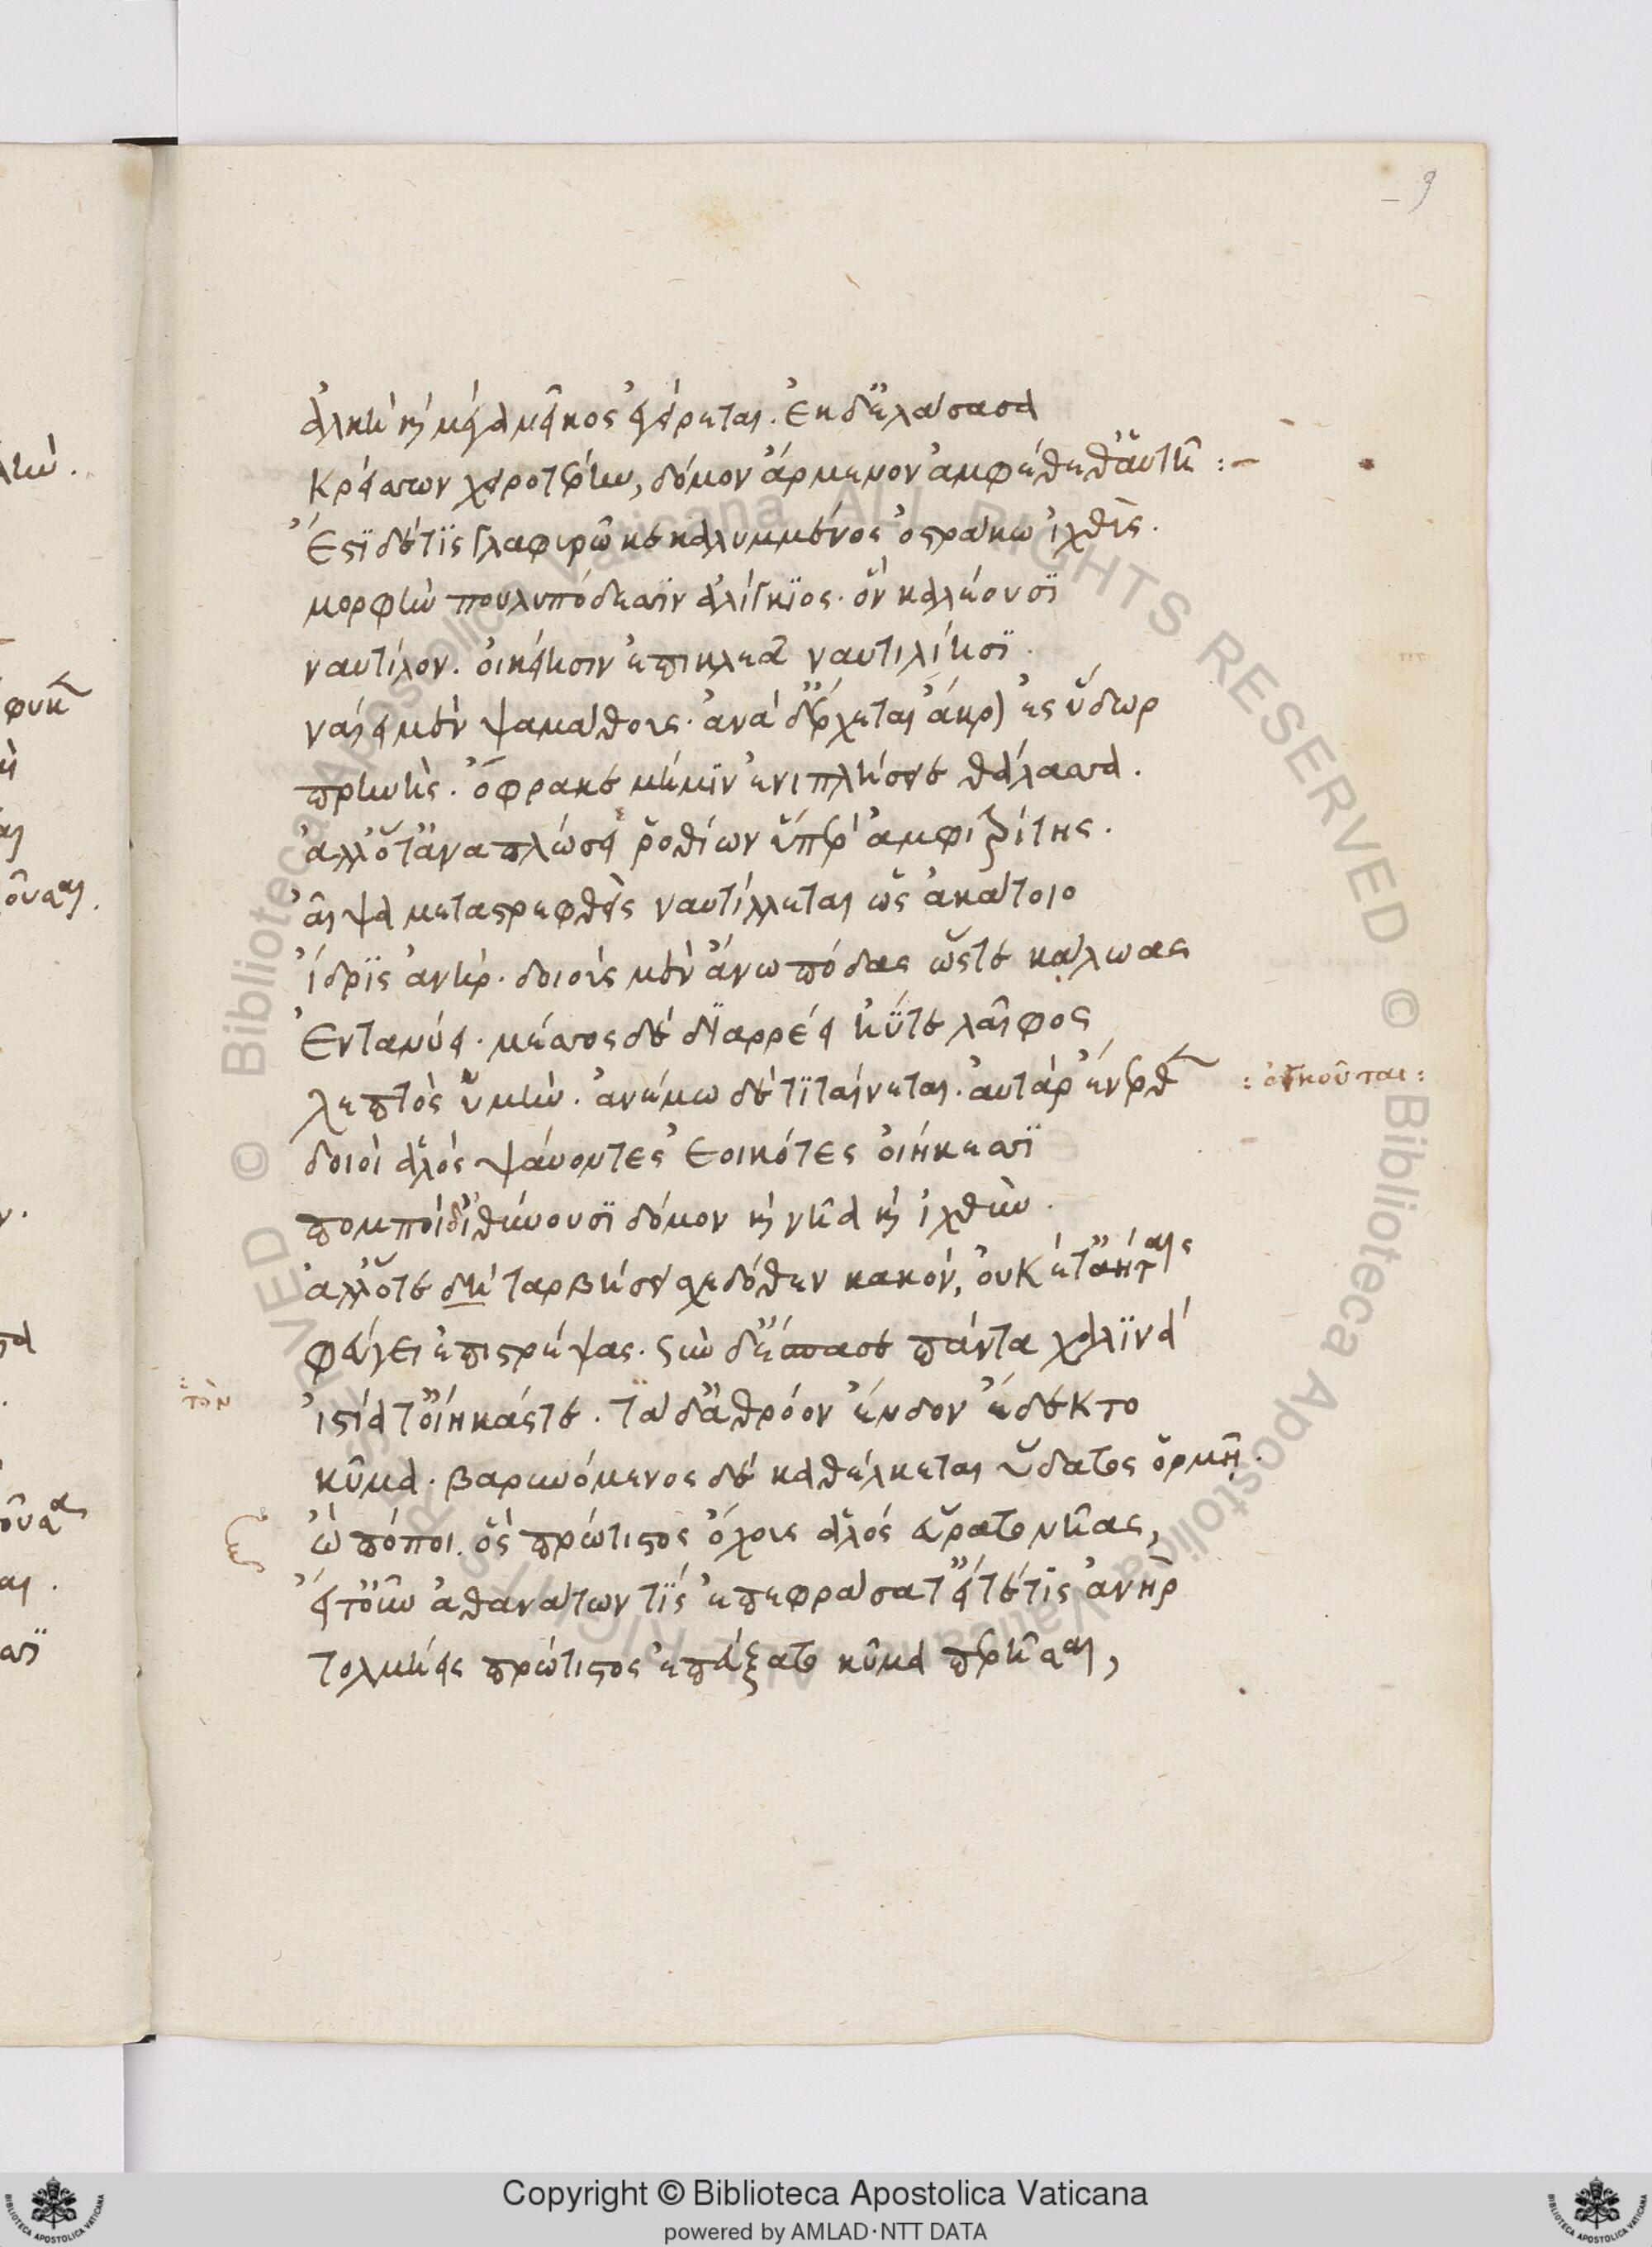 9
ἀλκὴ καὶ μέγα μῆκος ἐφέρεται. ἐκ δ' ἐλάσασα
κρέσσων χειροτέρην, δόμον ἄρμενον ἀμφέθεθ' αὑτῇ :-
Ἔστι δέ τις γλαφυρῷ κεκαλυμμένος ὀστράκω ἰχθὺς.
μορφὴν πουλυπόδεσσιν ἀλίγκιος. ὃν καλέουσι
ναυτίλον. οἰκείῃσιν ἐπικλέα ναυτιλίῃσι.
ναίει μὲν ψαμάθοις. ἀνὰ δ' ἔρχεται ἄκρον ἐς ὕδωρ
πρηνὴς. ὄφρα κε μή μιν ἐνιπλήσειε θάλασσα.
ἀλλ' ὅτ' ἀναπλώσῃ ῥοθίων ὕπερ ἀμφιτρίτης.
αἶψα μεταστρεφθεὶς ναυτίλλεται ὡς ἀκάτοιο
ἴδρις ἀνήρ. δοιοὺς μὲν ἄνω πόδας ὥστε κάλωας
ἐντανύει. μέσσος δὲ διαρρέει ἠΰτε λαῖφος
λεπτὸς ὑμὴν. ἀνέμω δέ τιταίνεται. αὐτὰρ ἔνερθεν
: ὀγκοῦται :
δοιοὶ ἁλὸς ψαύοντες ἐοικότες οἰήκεσσι
πομποὶ δ' ἰθύνουσι δόμον καὶ νῆα καὶ ἰχθὺν.
ἀλλ' ὅτε δὴ ταρβήσει σχεδόθεν κακόν, οὐκέτ' ἀήταις
φεύγει ἐπιστρέψας. σὺν δ' ἔσπασε πάντα χαλινὰ
τὸν
ἱστία τ' οἴηκάς τε. τὸ δ' ἀθρόον ἔνδον ἔδεκτο
κῦμα. βαρυνόμενος δὲ καθέλκεται ὕδατος ὁρμῇ.
ὢ πόποι. ὃς πρώτιστος ὄχοις ἁλὸς εὕρατο νῆας,
εἴτ' οὖν ἀθανάτων τίς ἐπεφράσατ' εἴτέ τις ἀνὴρ
τολμήεις πρώτιστος ἐπεύξατο κῦμα περῆσαι,
Copyright © Biblioteca Apostolica Vaticana
powered by AMLAD·NTT DATA